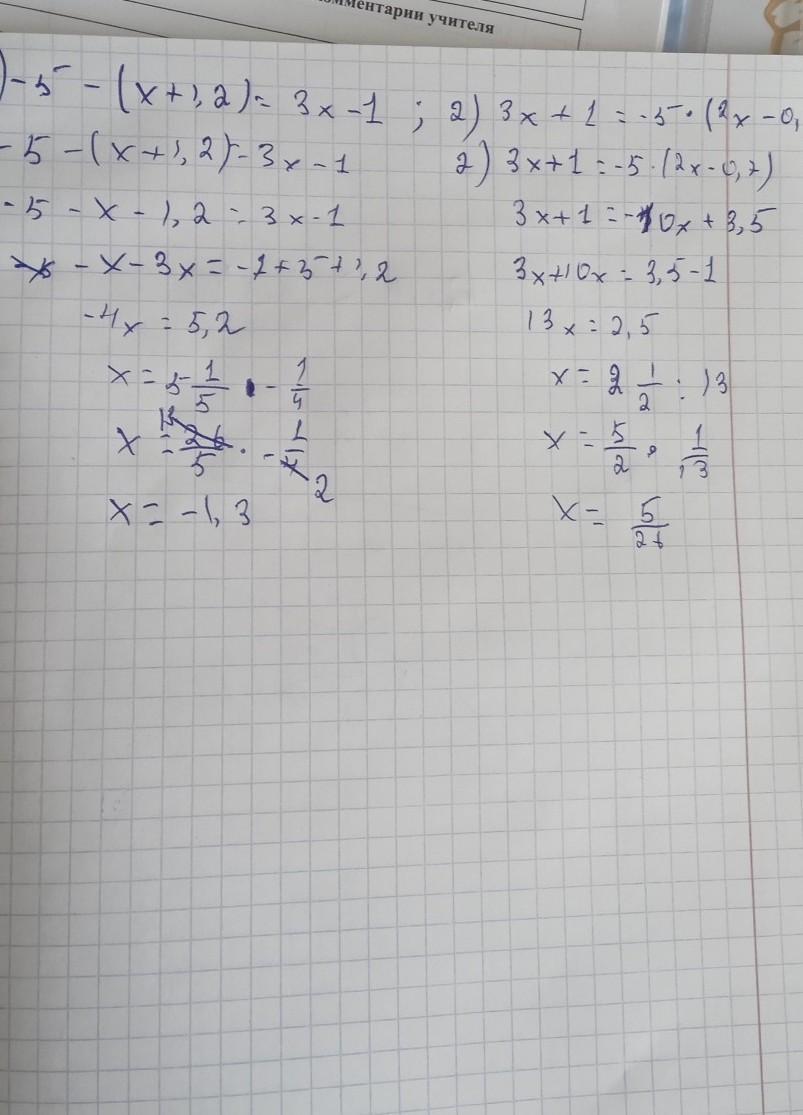 комментарии учителя
) -5 - (x+1,2) = 3x-1 ; 2) 3x+1 = -5·(2x-0,
-5 - (x+1,2) = 3x-1
2) 3x+1 = -5·(2x-0,7)
-5 - x - 1,2 = 3x-1
3x+1 = -10x+3,5
-x-3x = -1+5+1,2
3x+10x = 3,5-1
-4x = 5,2
13x = 2,5
x = 5 1/5 · - 1/4
x = 2 1/2 : 13
x = 26/5 13 · - 1/4 2
x = 5/2 · 1/13
x = -1,3
x = 5/26